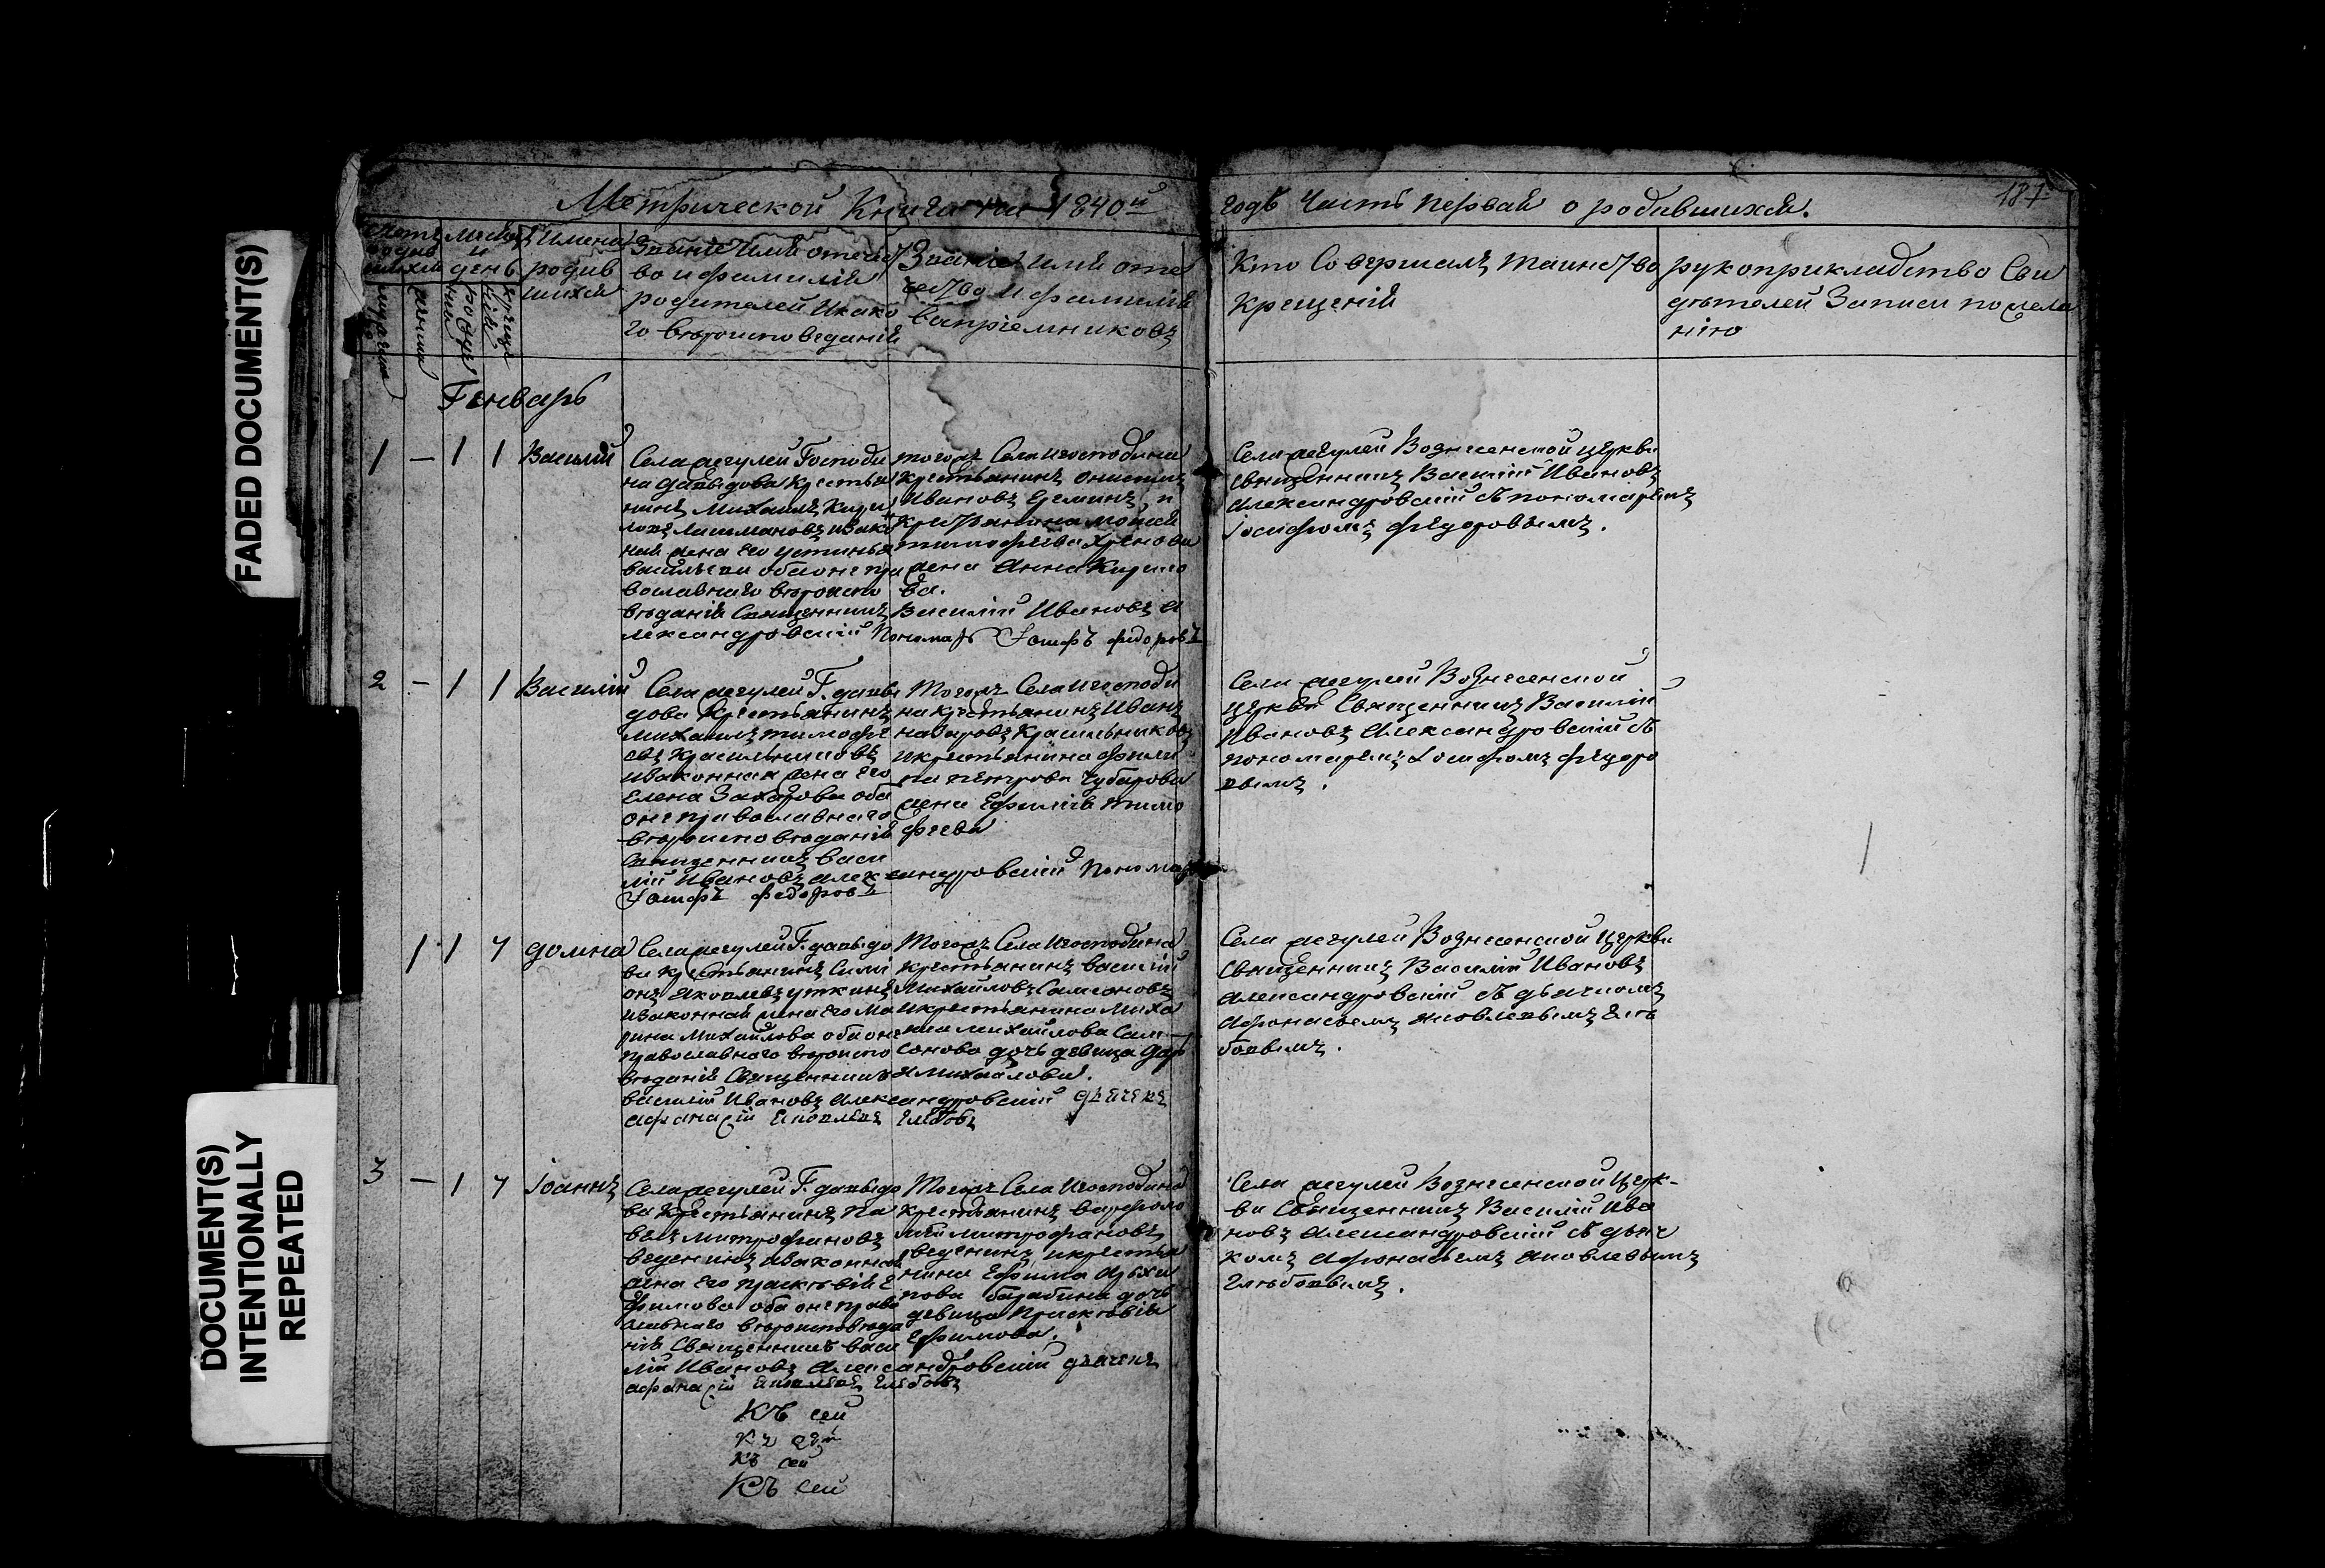 FADED DOCUMENT(S)
DOCUMENT(S)
INTENTIONALLY
REPEATED
Метрической Книги на 1840й
годъ Часть первая о родившихся.
187
Имена
родив
шихся
Званіе имя отечест
во и фамилія
родителей и како
го вѣроисповеданія
Званіе имя оте
чество и фамилія
вапріемниковъ
Кто Совершалъ таинство
крещенія
рукоприкладство Сви
дѣтелей Записи по жела
нію
Генварь
1 — 1 1
Василій
Села Господи
на давыдова крестья
нинъ Михаилъ Кири
ловъ
ная жена его устинья
васильева оба они пра
вославнаго вѣроиспо
вѣданія Священникъ
тогожъ Села и господина
крестьянинъ
Ивановъ Ереминъ и
крестьянина
тимофѣева
жена Анна Кирило
ва.
Василій Ивановъ А
лександровскій Пономарь Іосифъ федоровъ
Села Вознесенской церкви
священникъ Василій Ивановъ
Александровскій съ пономаремъ
Іосифомъ федоровымъ.
2 — 1 1
Василій
Села Г. давы
дова крестьянинъ
Михаилъ тимофѣ
евъ Красильниковъ
и законная жена его
Елена Захарова оба
они православнаго
вѣроисповѣданія
Священникъ Васи
лій Ивановъ Александровскій Пономарь
Іосифъ федоровъ
Тогожъ Села и господи
на крестьянинъ Иванъ
назаровъ Красильниковъ
и крестьянина фили
па петрова Чубарова
жена Ефимія тимо
фѣева
Села Вознесенской
церкви Священникъ Василій
Ивановъ Александровскій съ
пономаремъ Іосифомъ федоро
вымъ.
1 1 7
домна
Села Г. давыдо
ва крестьянинъ Симі
онъ Яковлевъ уткинъ
и законная жена его Ма
рина Михайлова оба они
православнаго вѣроиспо
вѣданія Священникъ
Василій Ивановъ Александровскій дьячекъ
афанасій Яковлевъ Глѣбовъ
Тогожъ Села и господина
крестьянинъ василій
Михайловъ Самсоновъ
и крестьянина Миха
ила михайлова Сам—
сонова дочь девица дарь
я Михайлова.
Села Вознесенской Церкви
Священникъ Василій Ивановъ
Александровскій съ дьячкомъ
Афонасьемъ яковлевымъ Глѣ
бовымъ.
3 — 1 7
Іоаннъ
Села Г. давыдо
ва крестьянинъ Па
велъ митрофановъ
веденинъ и законная
жена его прасковія Е
фимова оба они право
славнаго вѣроисповѣда
нія Священникъ Васи
лій Ивановъ Александровскій дьячекъ
афанасій Яковлевъ Глѣбовъ
Тогожъ Села и господина
крестьянинъ варфоло
мей митрофановъ
веденинъ и крестья
нина Ефима Архи
пова барабина дочь
девица Прасковія
Ефимова.
Села Вознесенской Церк-
ви Священникъ Василій Ива
новъ Александровскій съ дьяч
комъ Афонасьемъ яковлевымъ
Глѣбовымъ.
Къ сей
Къ сей
Къ сей
Къ сей